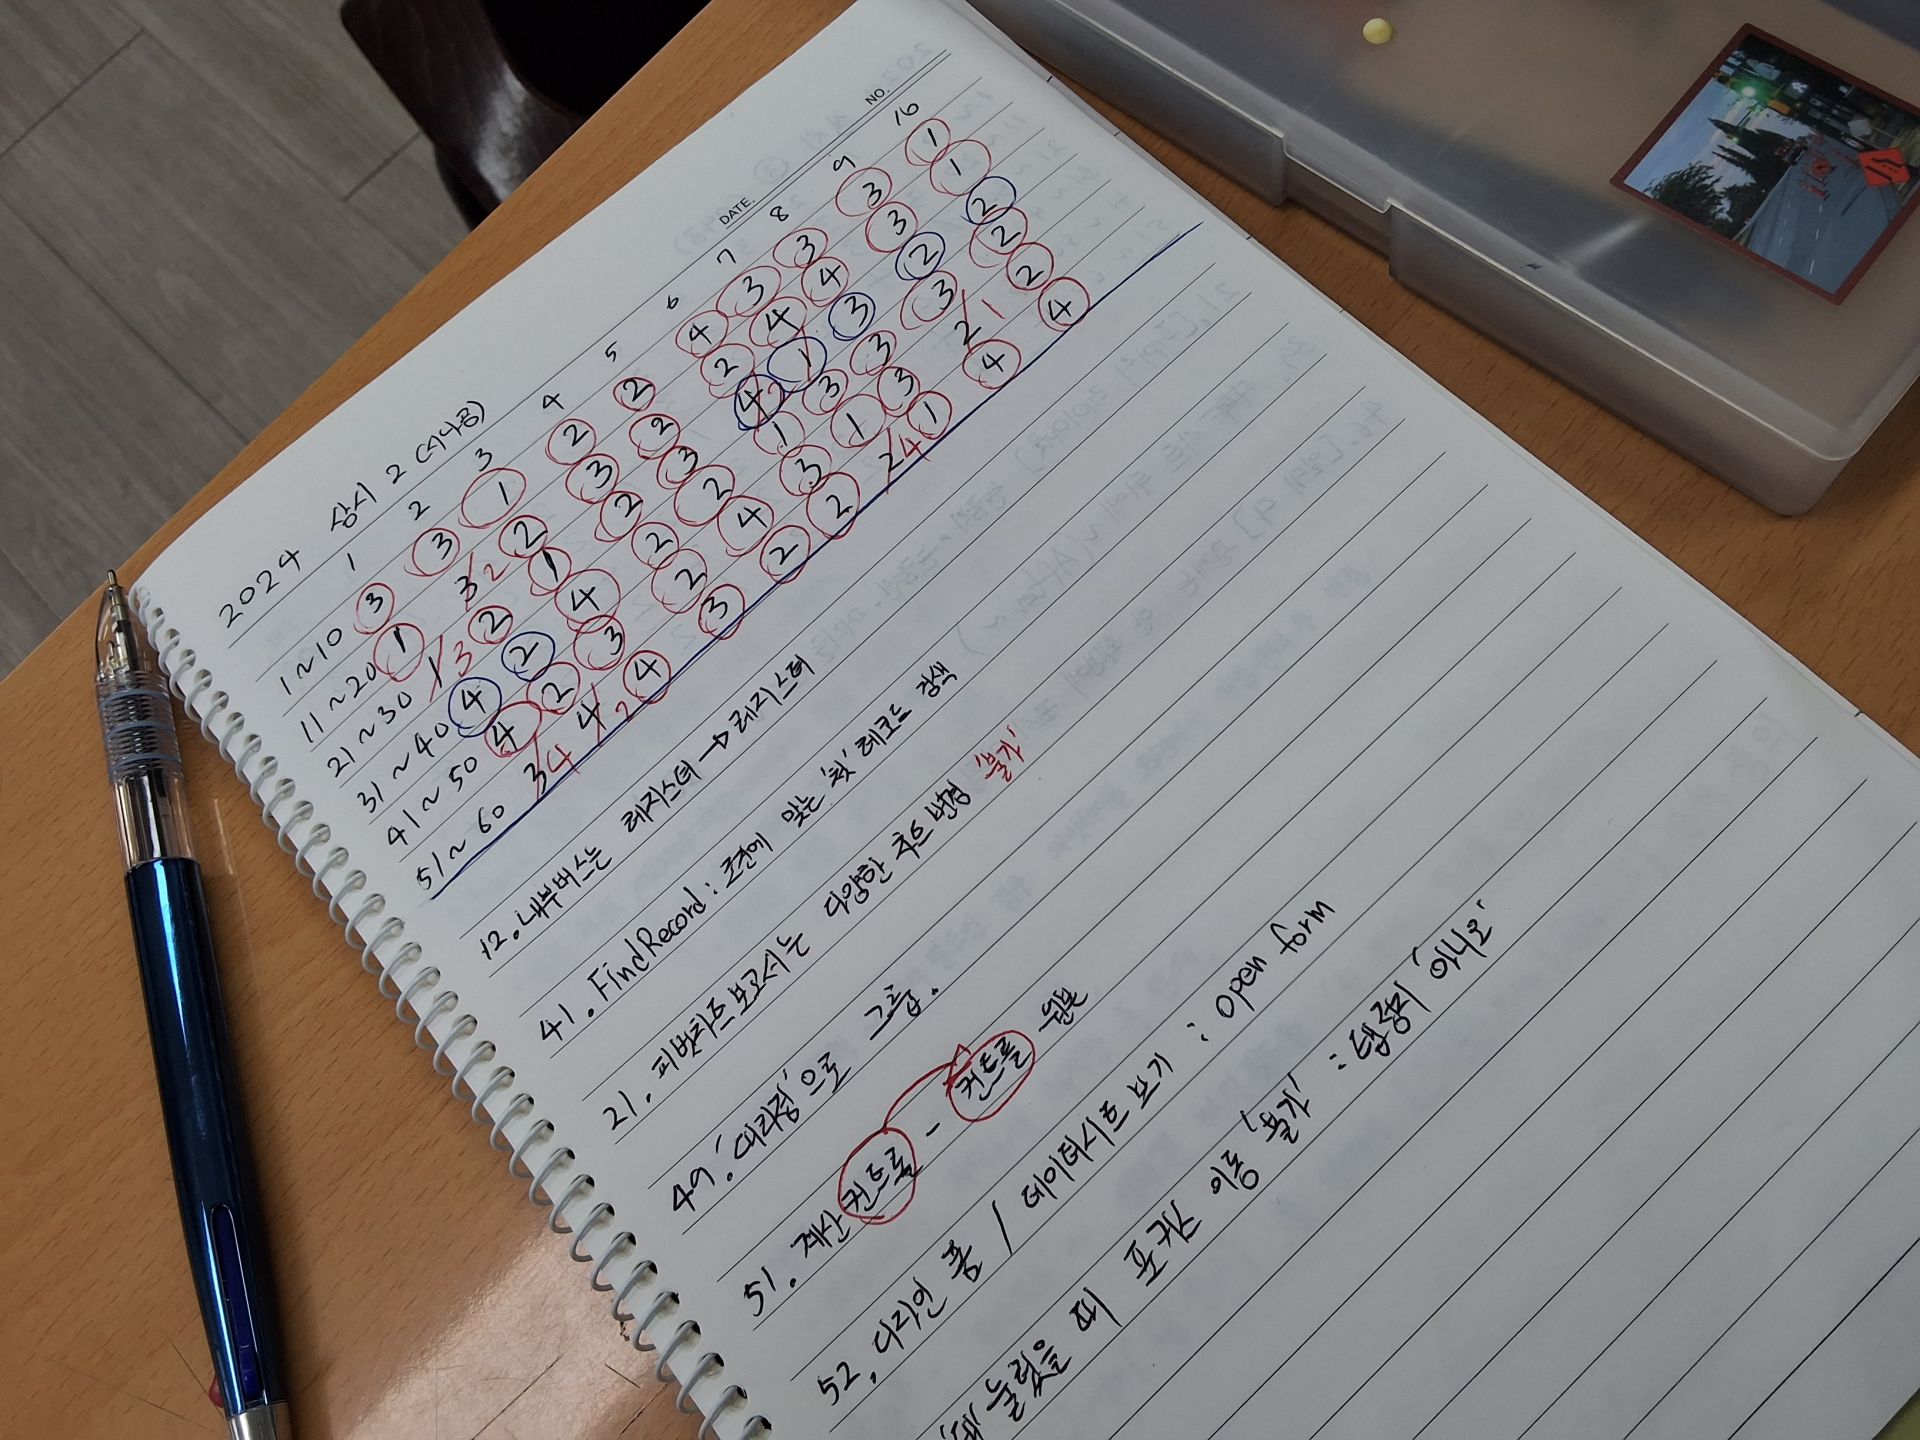 NO.
DATE.
2024 상시 2 (시나공)
1 2 3 4 5 6 7 8 9 10
1~10 3 3 1 2 2 4 3 3 3 1
11~20 1 3 2 2 3 2 2 4 4 3 1
21~30 1 3 2 1 2 3 4 2 1 3 2 2
31~40 4 2 4 2 2 1 3 3 3 2
41~50 4 2 3 2 4 3 1 3 2 1 2
51~60 3 4 4 2 4 3 2 2 2 4 1 4 4
12. 내부버스는 레지스터 → 레지스터
41. FindRecord : 조건에 맞는 '첫' 레코드 검색
21. 피벗차트 보고서는 다양한 차트 변경 '불가'
49. '대리점'으로 그룹.
51. 계산 컨트롤 - 컨트롤 원본
52. 디자인 폼 / 데이터시트 보기 : open form
눌렀을 때 포커스 이동 '불가' : 탭정지 '아니오'